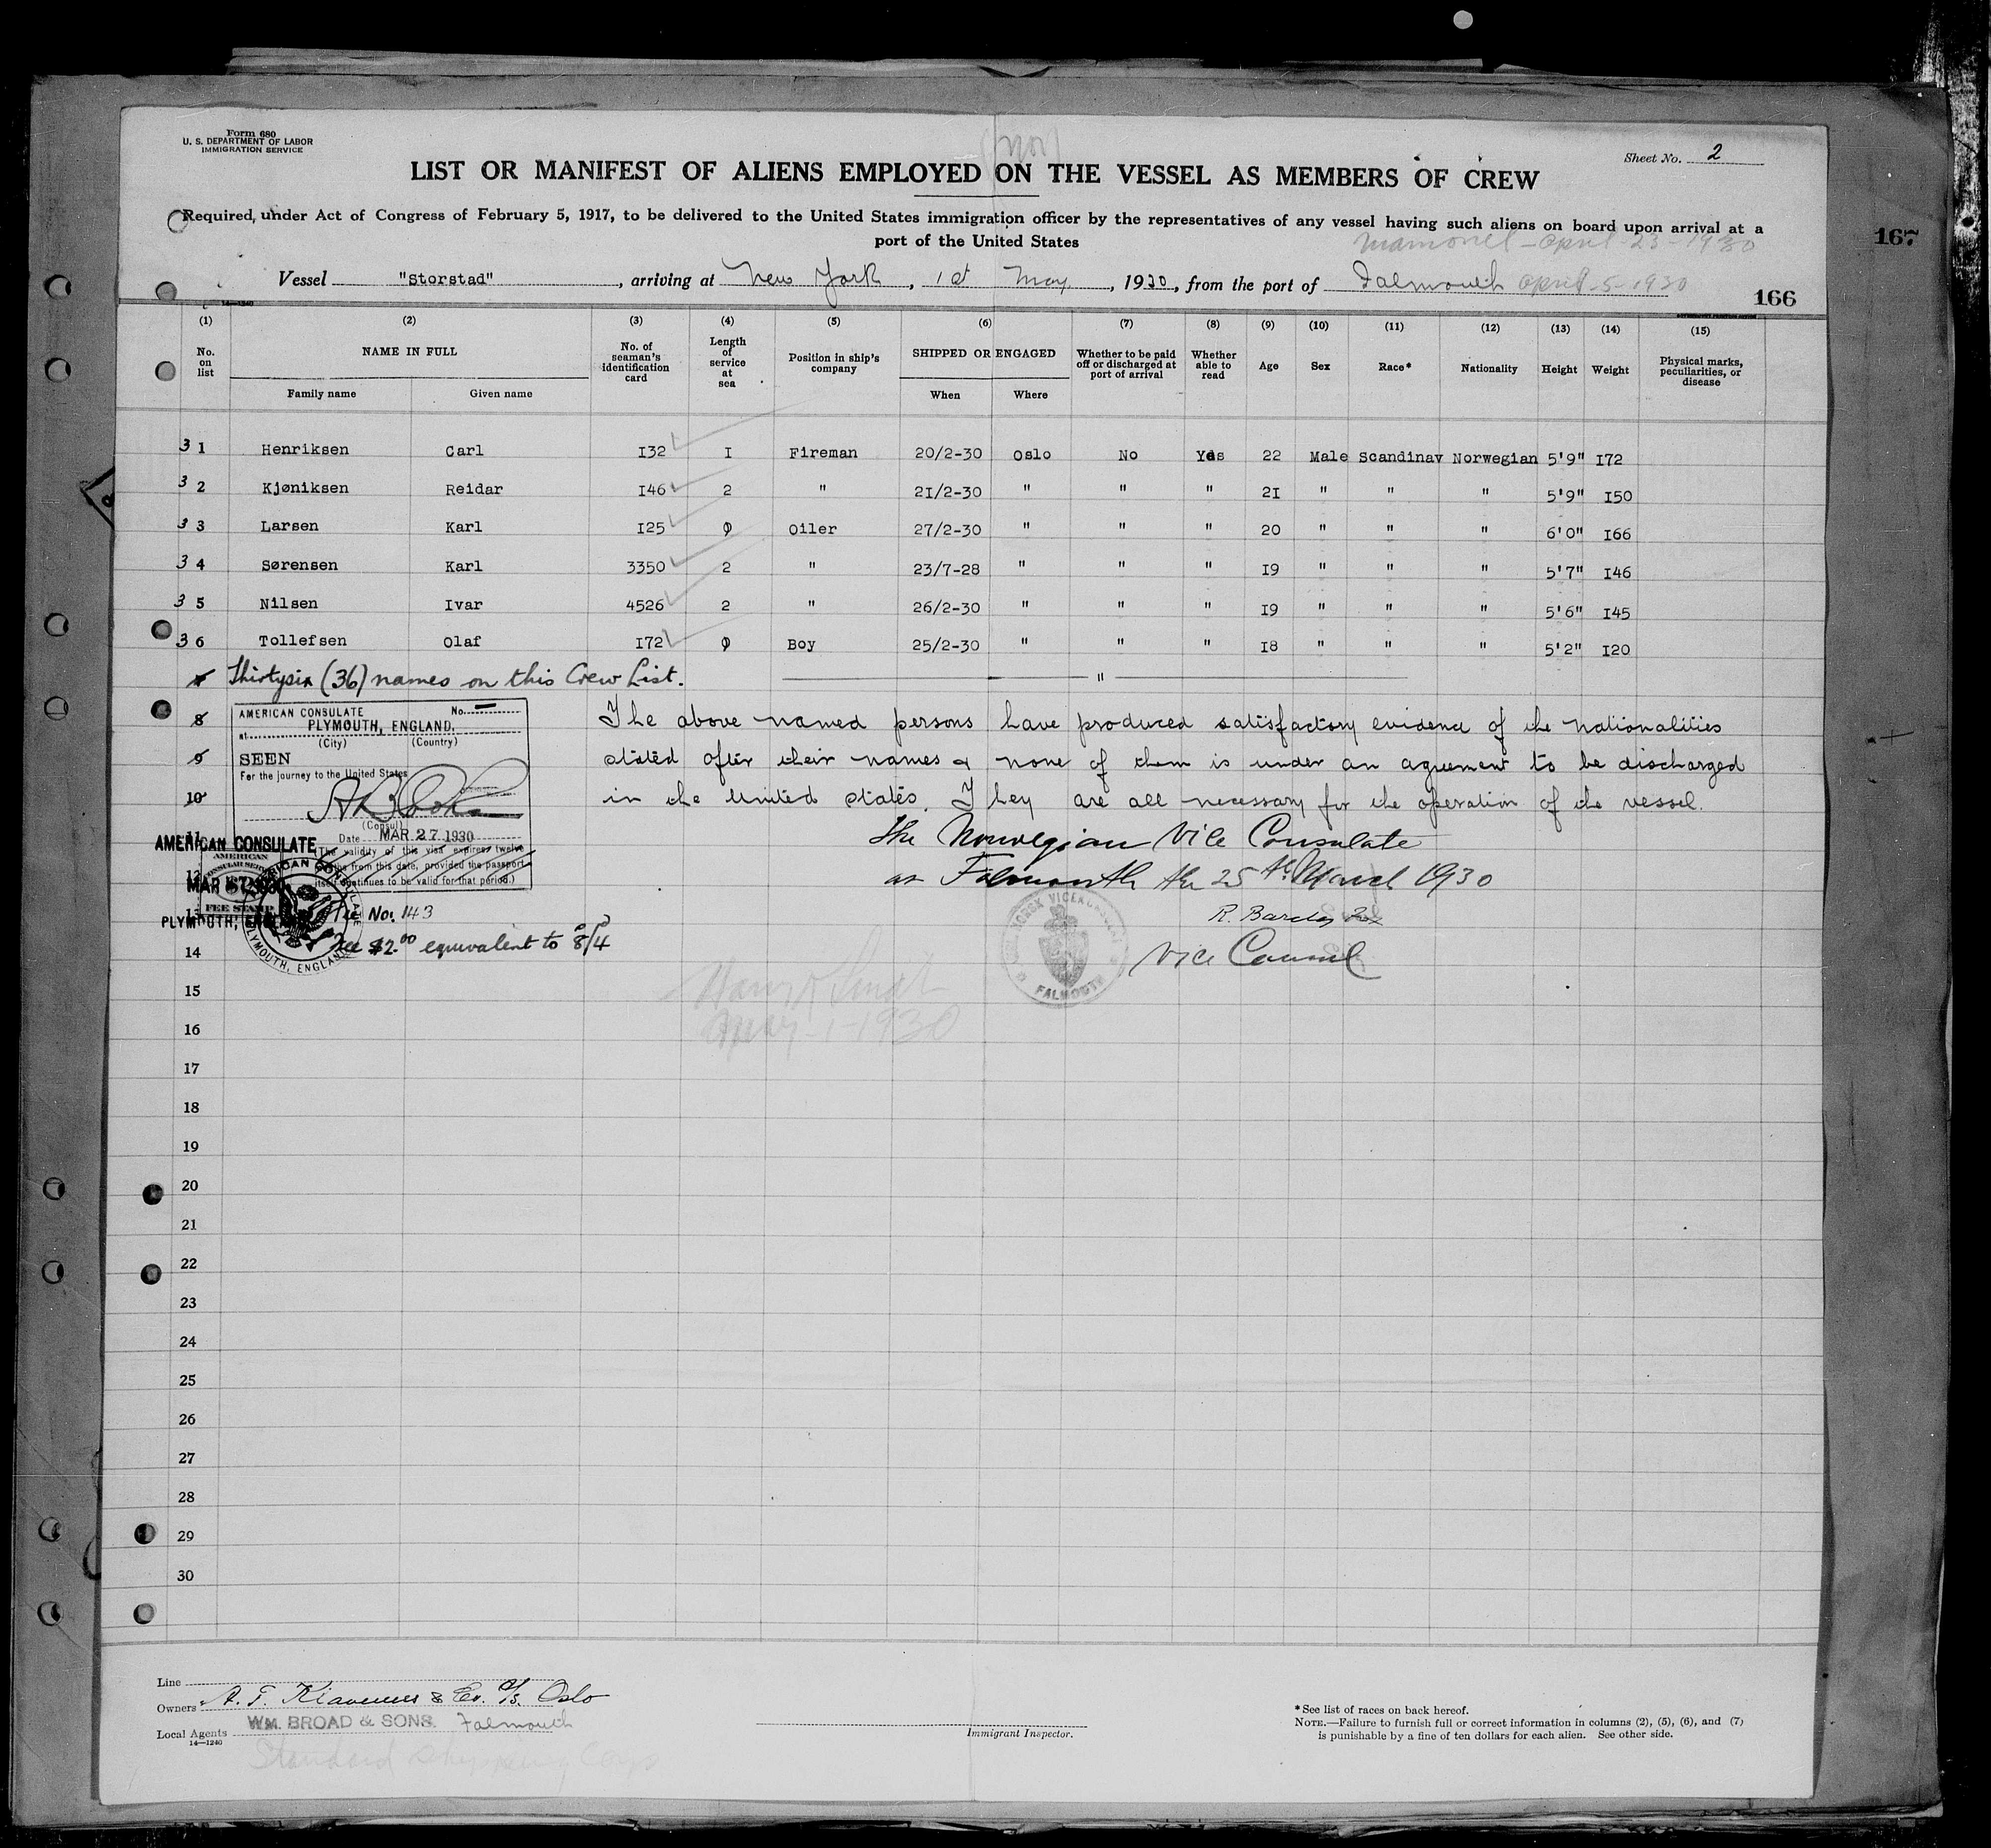 Form 680
U. S. DEPARTMENT OF LABOR
IMMIGRATION SERVICE
(Nor)
Sheet No. 2
LIST OR MANIFEST OF ALIENS EMPLOYED ON THE VESSEL AS MEMBERS OF CREW
Required, under Act of Congress of February 5, 1917, to be delivered to the United States immigration officer by the representatives of any vessel having such aliens on board upon arrival at a
port of the United States
April 23-1930
167
Vessel "Storstad", arriving at New York, 1st May, 1930, from the port of Falmouth April-5-1930
14-1240
166
(1) (2) (3) (4) (5) (6) (7) (8) (9) (10) (11) (12) (13) (14) (15)
No. on list NAME IN FULL No. of seaman's identification card Length of service at sea Position in ship's company SHIPPED OR ENGAGED Whether to be paid off or discharged at port of arrival Whether able to read Age Sex Race* Nationality Height Weight Physical marks, peculiarities, or disease
Family name Given name When Where
3 1 Henriksen Carl I32 I Fireman 20/2-30 Oslo No Yes 22 Male Scandinav Norwegian 5'9" I72
3 2 Kjøniksen Reidar I46 2 " 2I/2-30 " " " 2I " " " 5'9" I50
3 3 Larsen Karl I25 Oiler 27/2-30 " " " 20 " " " 6'0" I66
3 4 Sørensen Karl 3350 2 " 23/7-28 " " " I9 " " " 5'7" I46
3 5 Nilsen Ivar 4526 2 " 26/2-30 " " " I9 " " " 5'6" I45
3 6 Tollefsen Olaf I72 Boy 25/2-30 " " " I8 " " " 5'2" I20
Thirtysix (36) names on this Crew List. "
8 The above named persons have produced satisfactory evidence of the nationalities
9 stated after their names & none of them is under an agreement to be discharged
10 in the United States. They are all necessary for the operation of the vessel.
AMERICAN CONSULATE No. —
at PLYMOUTH, ENGLAND.
(City) (Country)
SEEN
For the journey to the United States
(Consul)
Date MAR 27 1930
(The validity of this visa expires twelve
months from this date, provided the passport
itself continues to be valid for that period.)
11
the Norwegian Vice Consulate
at Falmouth the 25th March 1930
R. Barclay Fox
Vice Consul
AMERICAN CONSULATE
MAR 27 1930
PLYMOUTH, ENGLAND
AMERICAN
CONSULAR SERVICE
FEE STAMP
AMERICAN CONSULATE
PLYMOUTH, ENGLAND
Fee No. 143
Fee $2.00 equivalent to 8/4
KGL. NORSK VICEKONSULAT
FALMOUTH
12
13
14
15
May-1-1930
16
17
18
19
20
21
22
23
24
25
26
27
28
29
30
Line
Owners A. F. Klaveness & Co. A/S. Oslo
Local Agents WM. BROAD & SONS. Falmouth
14-1240
Standard Shipping Corp
Immigrant Inspector.
*See list of races on back hereof.
NOTE.—Failure to furnish full or correct information in columns (2), (5), (6), and (7)
is punishable by a fine of ten dollars for each alien. See other side.